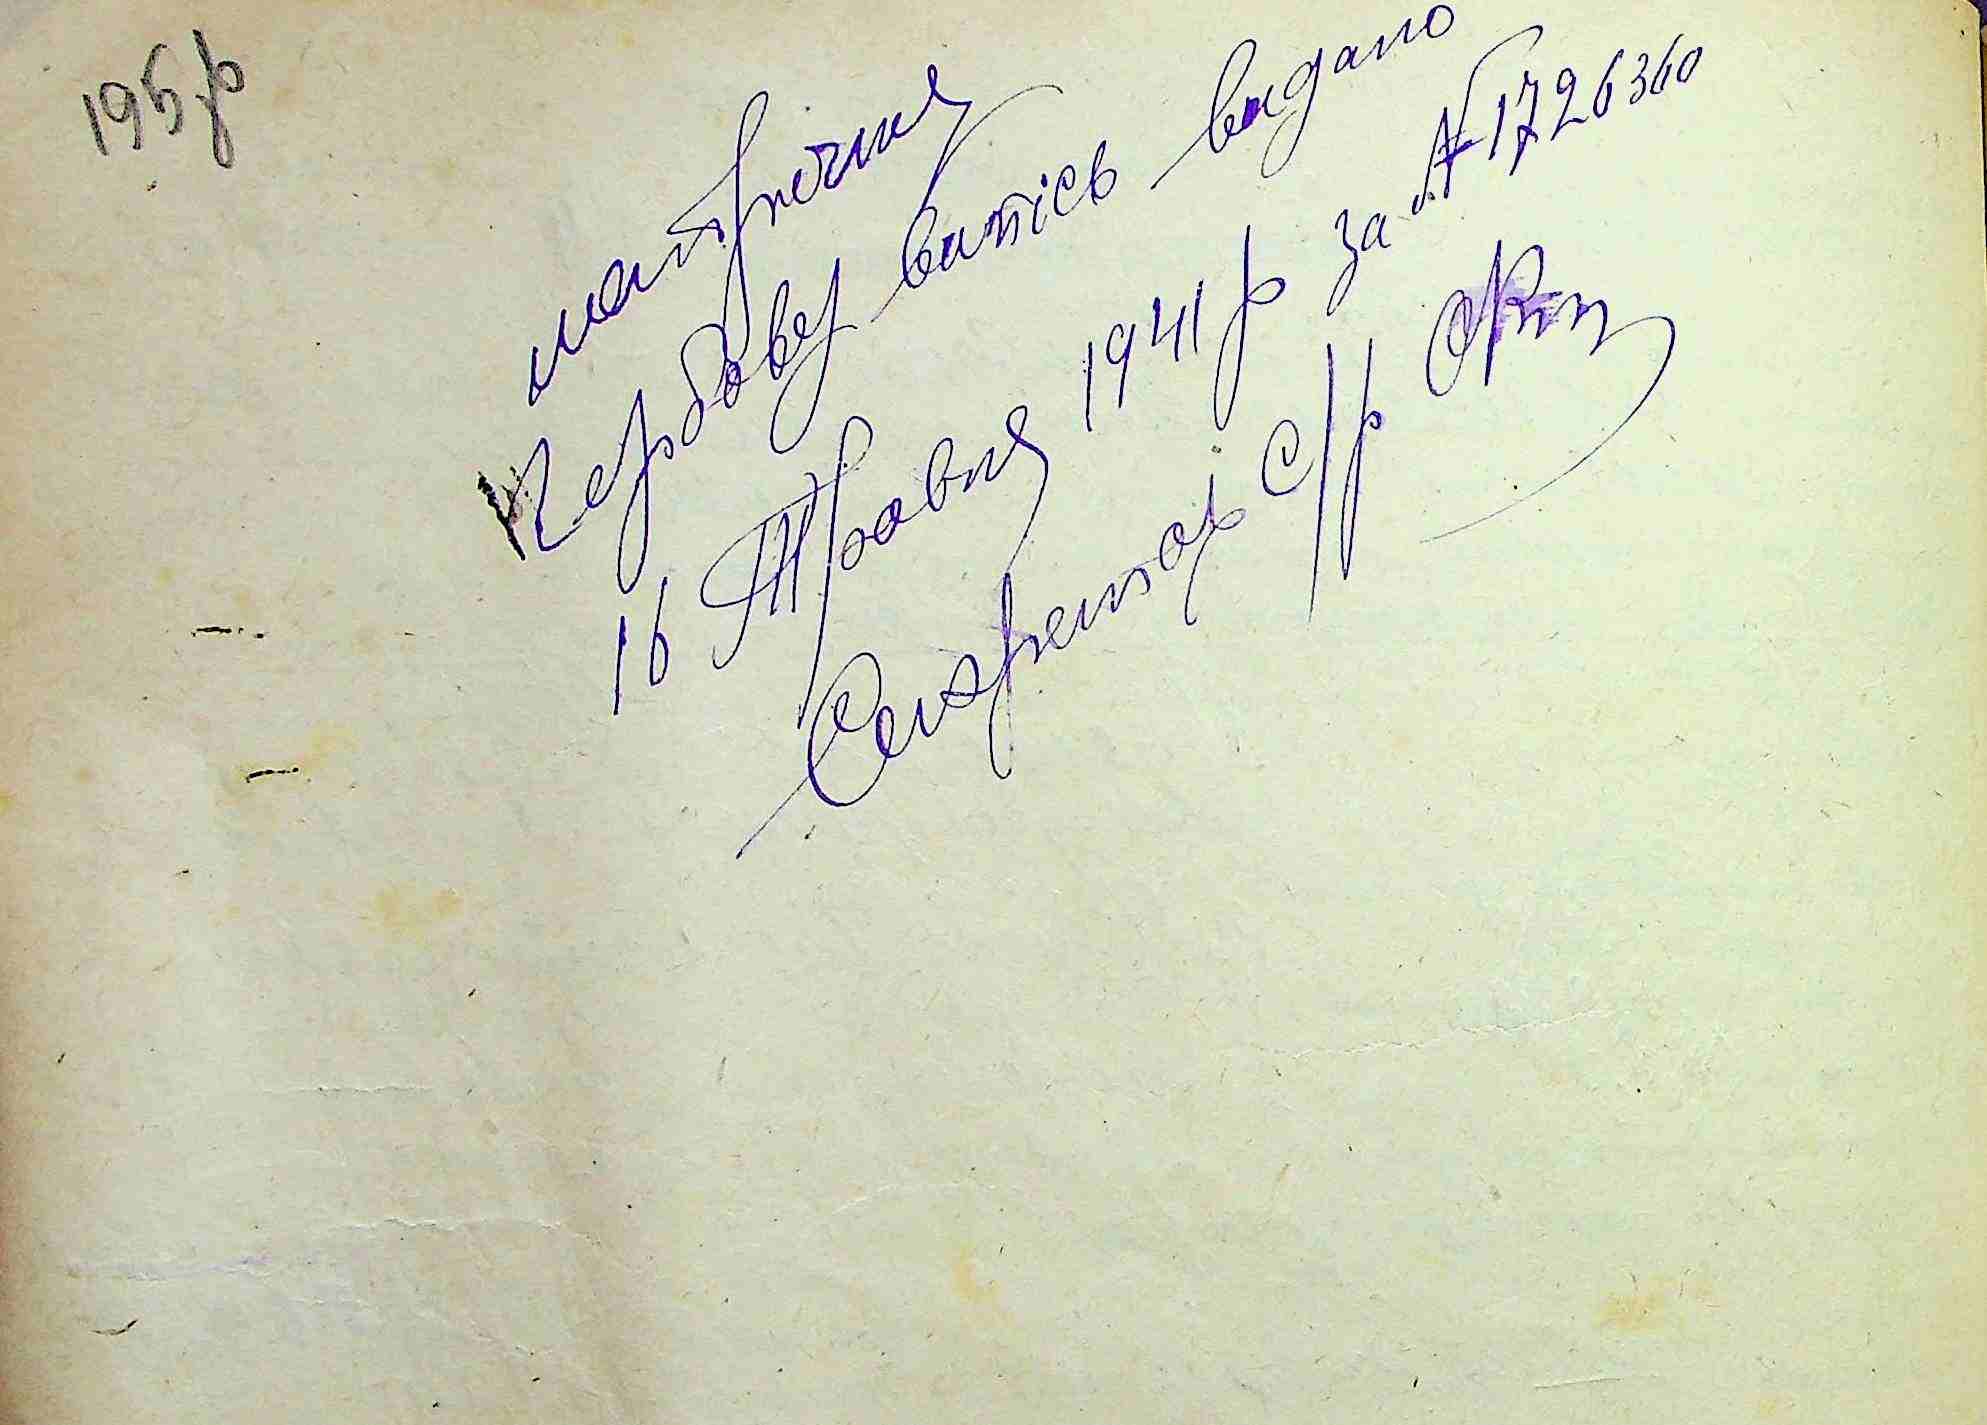 195р
матрична
Гербову випісь видано
16 Травня 1941 р за № 1726360
Секретар с/р